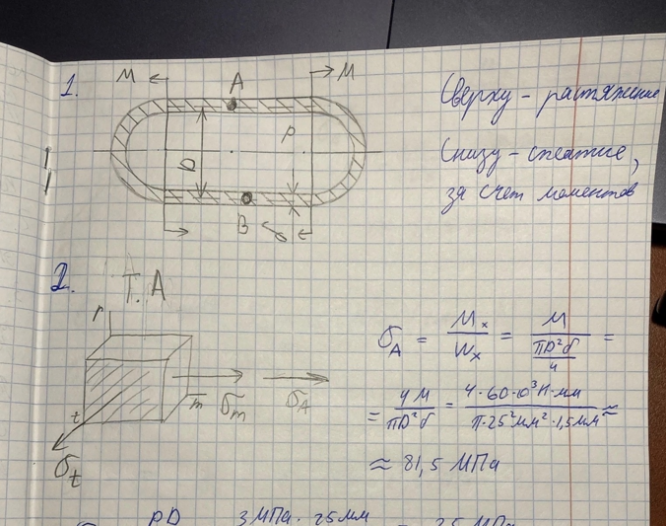 1.
M
A
M
D
P
B
δ
Сверху - растяжение
Снизу - сжатие,
за счет моментов
2.
Т. А
r
t
m
σm
σA
σt
σA = Mx / Wx = M / (πD²δ / 4) =
= 4M / πD²δ = 4·60·10³Н·мм / π·25²мм²·1,5мм ≈
≈ 81,5 МПа
PD 3МПа·25мм = 25 МПа